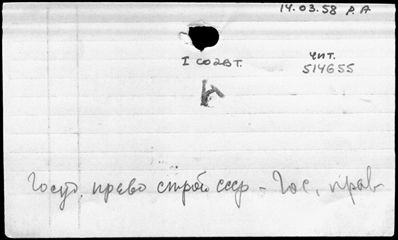 14.03.58 Р.А
I СОАВТ.
ЧИТ.
514655
Госуд. право строй ссср – Гос. прав